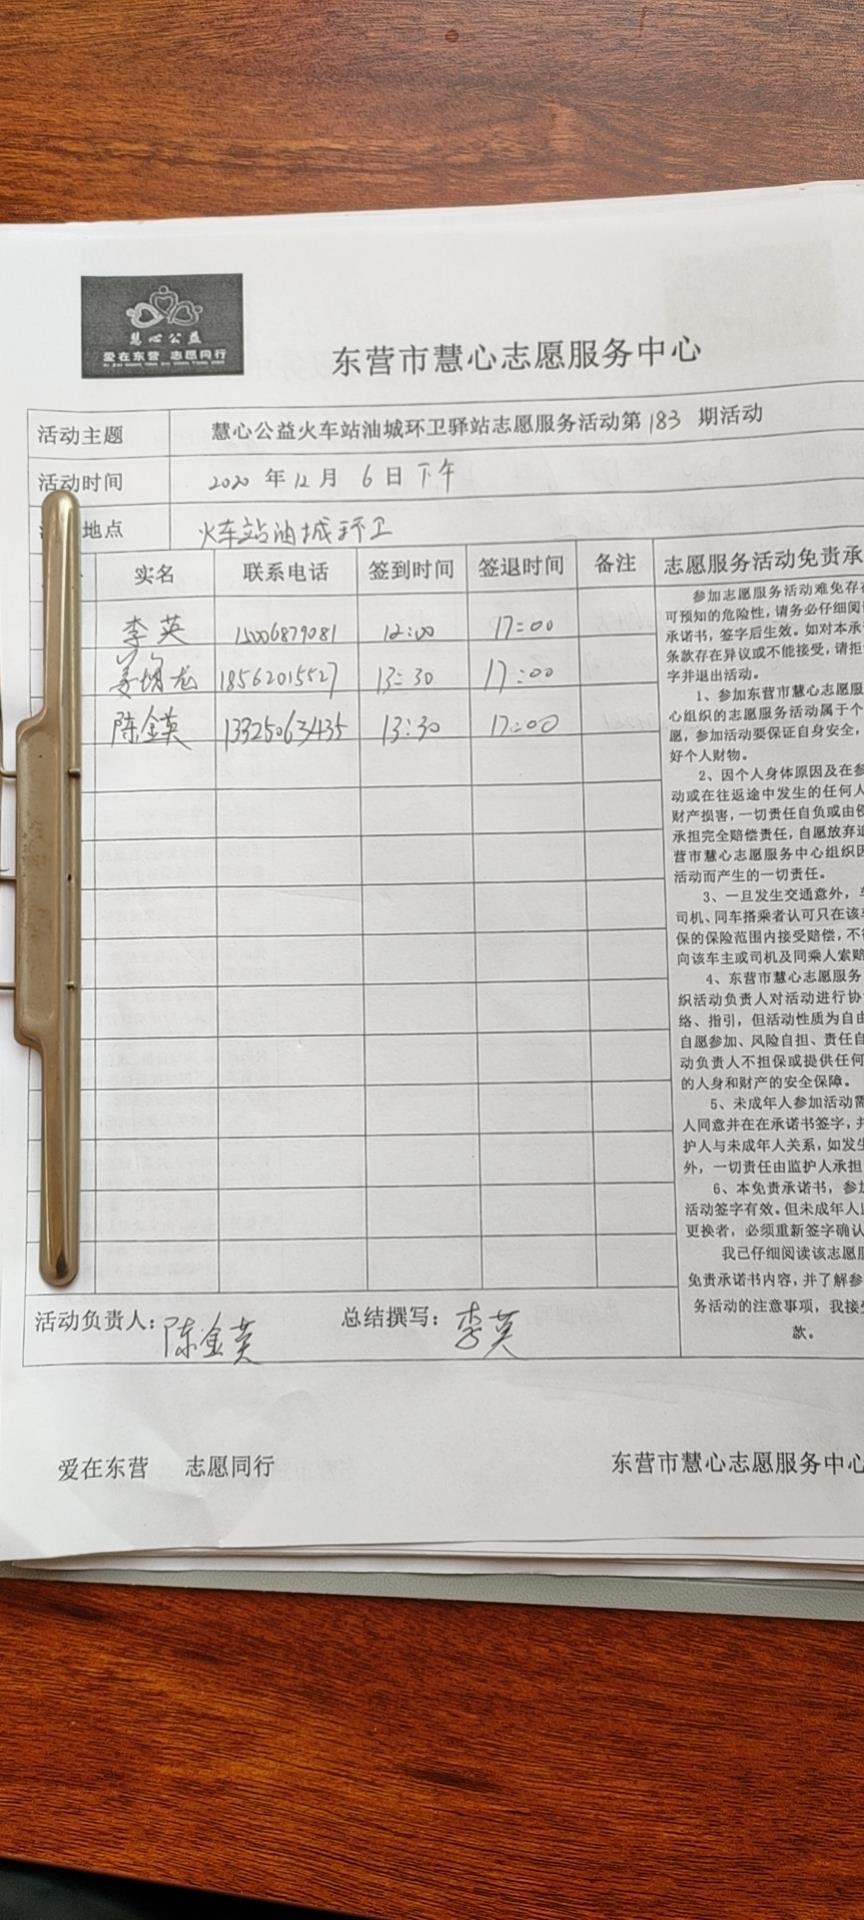 慧心公益
爱在东营 志愿同行
东营市慧心志愿服务中心
活动主题 慧心公益火车站油城环卫驿站志愿服务活动第183期活动
活动时间 2020年12月6日下午
地点 火车站油城环卫
实名 联系电话 签到时间 签退时间 备注 志愿服务活动免责承
李英 15006879081 12:00 17:00
姜增龙 18562015527 13:30 17:00
陈金英 13325063435 13:30 17:00
参加志愿服务活动难免存在
可预知的危险性,请务必仔细阅读
承诺书,签字后生效。如对本承
条款存在异议或不能接受,请拒
字并退出活动。
1、参加东营市慧心志愿服
心组织的志愿服务活动属于个
愿,参加活动要保证自身安全,
好个人财物。
2、因个人身体原因及在参
动或在往返途中发生的任何人
财产损害,一切责任自负或由侵
承担完全赔偿责任,自愿放弃追
营市慧心志愿服务中心组织因
活动而产生的一切责任。
3、一旦发生交通意外,车
司机、同车搭乘者认可只在该车
保的保险范围内接受赔偿,不得
向该车主或司机及同乘人索赔
4、东营市慧心志愿服务
织活动负责人对活动进行协
络、指引,但活动性质为自由
自愿参加、风险自担、责任自
动负责人不担保或提供任何
的人身和财产的安全保障。
5、未成年人参加活动需
人同意并在在承诺书签字,并
护人与未成年人关系,如发生
外,一切责任由监护人承担
6、本免责承诺书,参加
活动签字有效。但未成年人监
更换者,必须重新签字确认
我已仔细阅读该志愿服
免责承诺书内容,并了解参
务活动的注意事项,我接受
款。
活动负责人:陈金英 总结撰写:李英
爱在东营 志愿同行 东营市慧心志愿服务中心